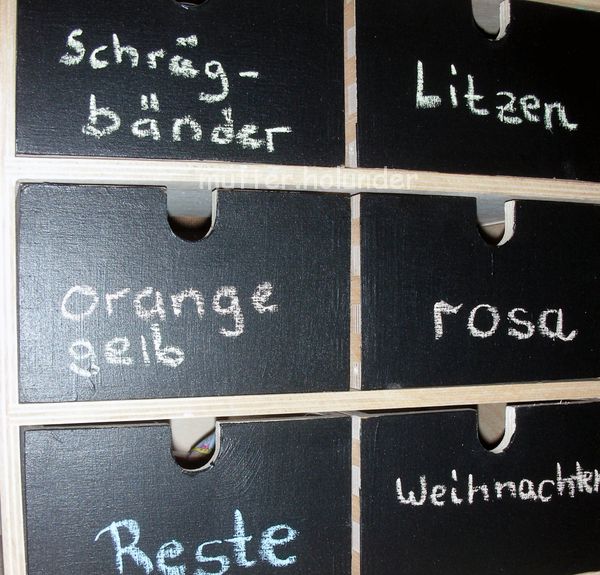 Schräg-
bänder
Litzen
mutter.holunder
orange
gelb
rosa
Reste
Weihnachten